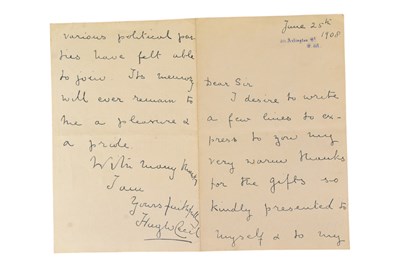 June 25th
1908
Dear Sir
I desire to write
a few lines to ex-
press to you my
very warm thanks
for the gifts so
kindly presented to
myself & to my
various political par-
ties have felt able
to join. Its memory
will ever remain to
me a pleasure &
a pride.
With many thanks
I am
Yours faithfully
Hugh